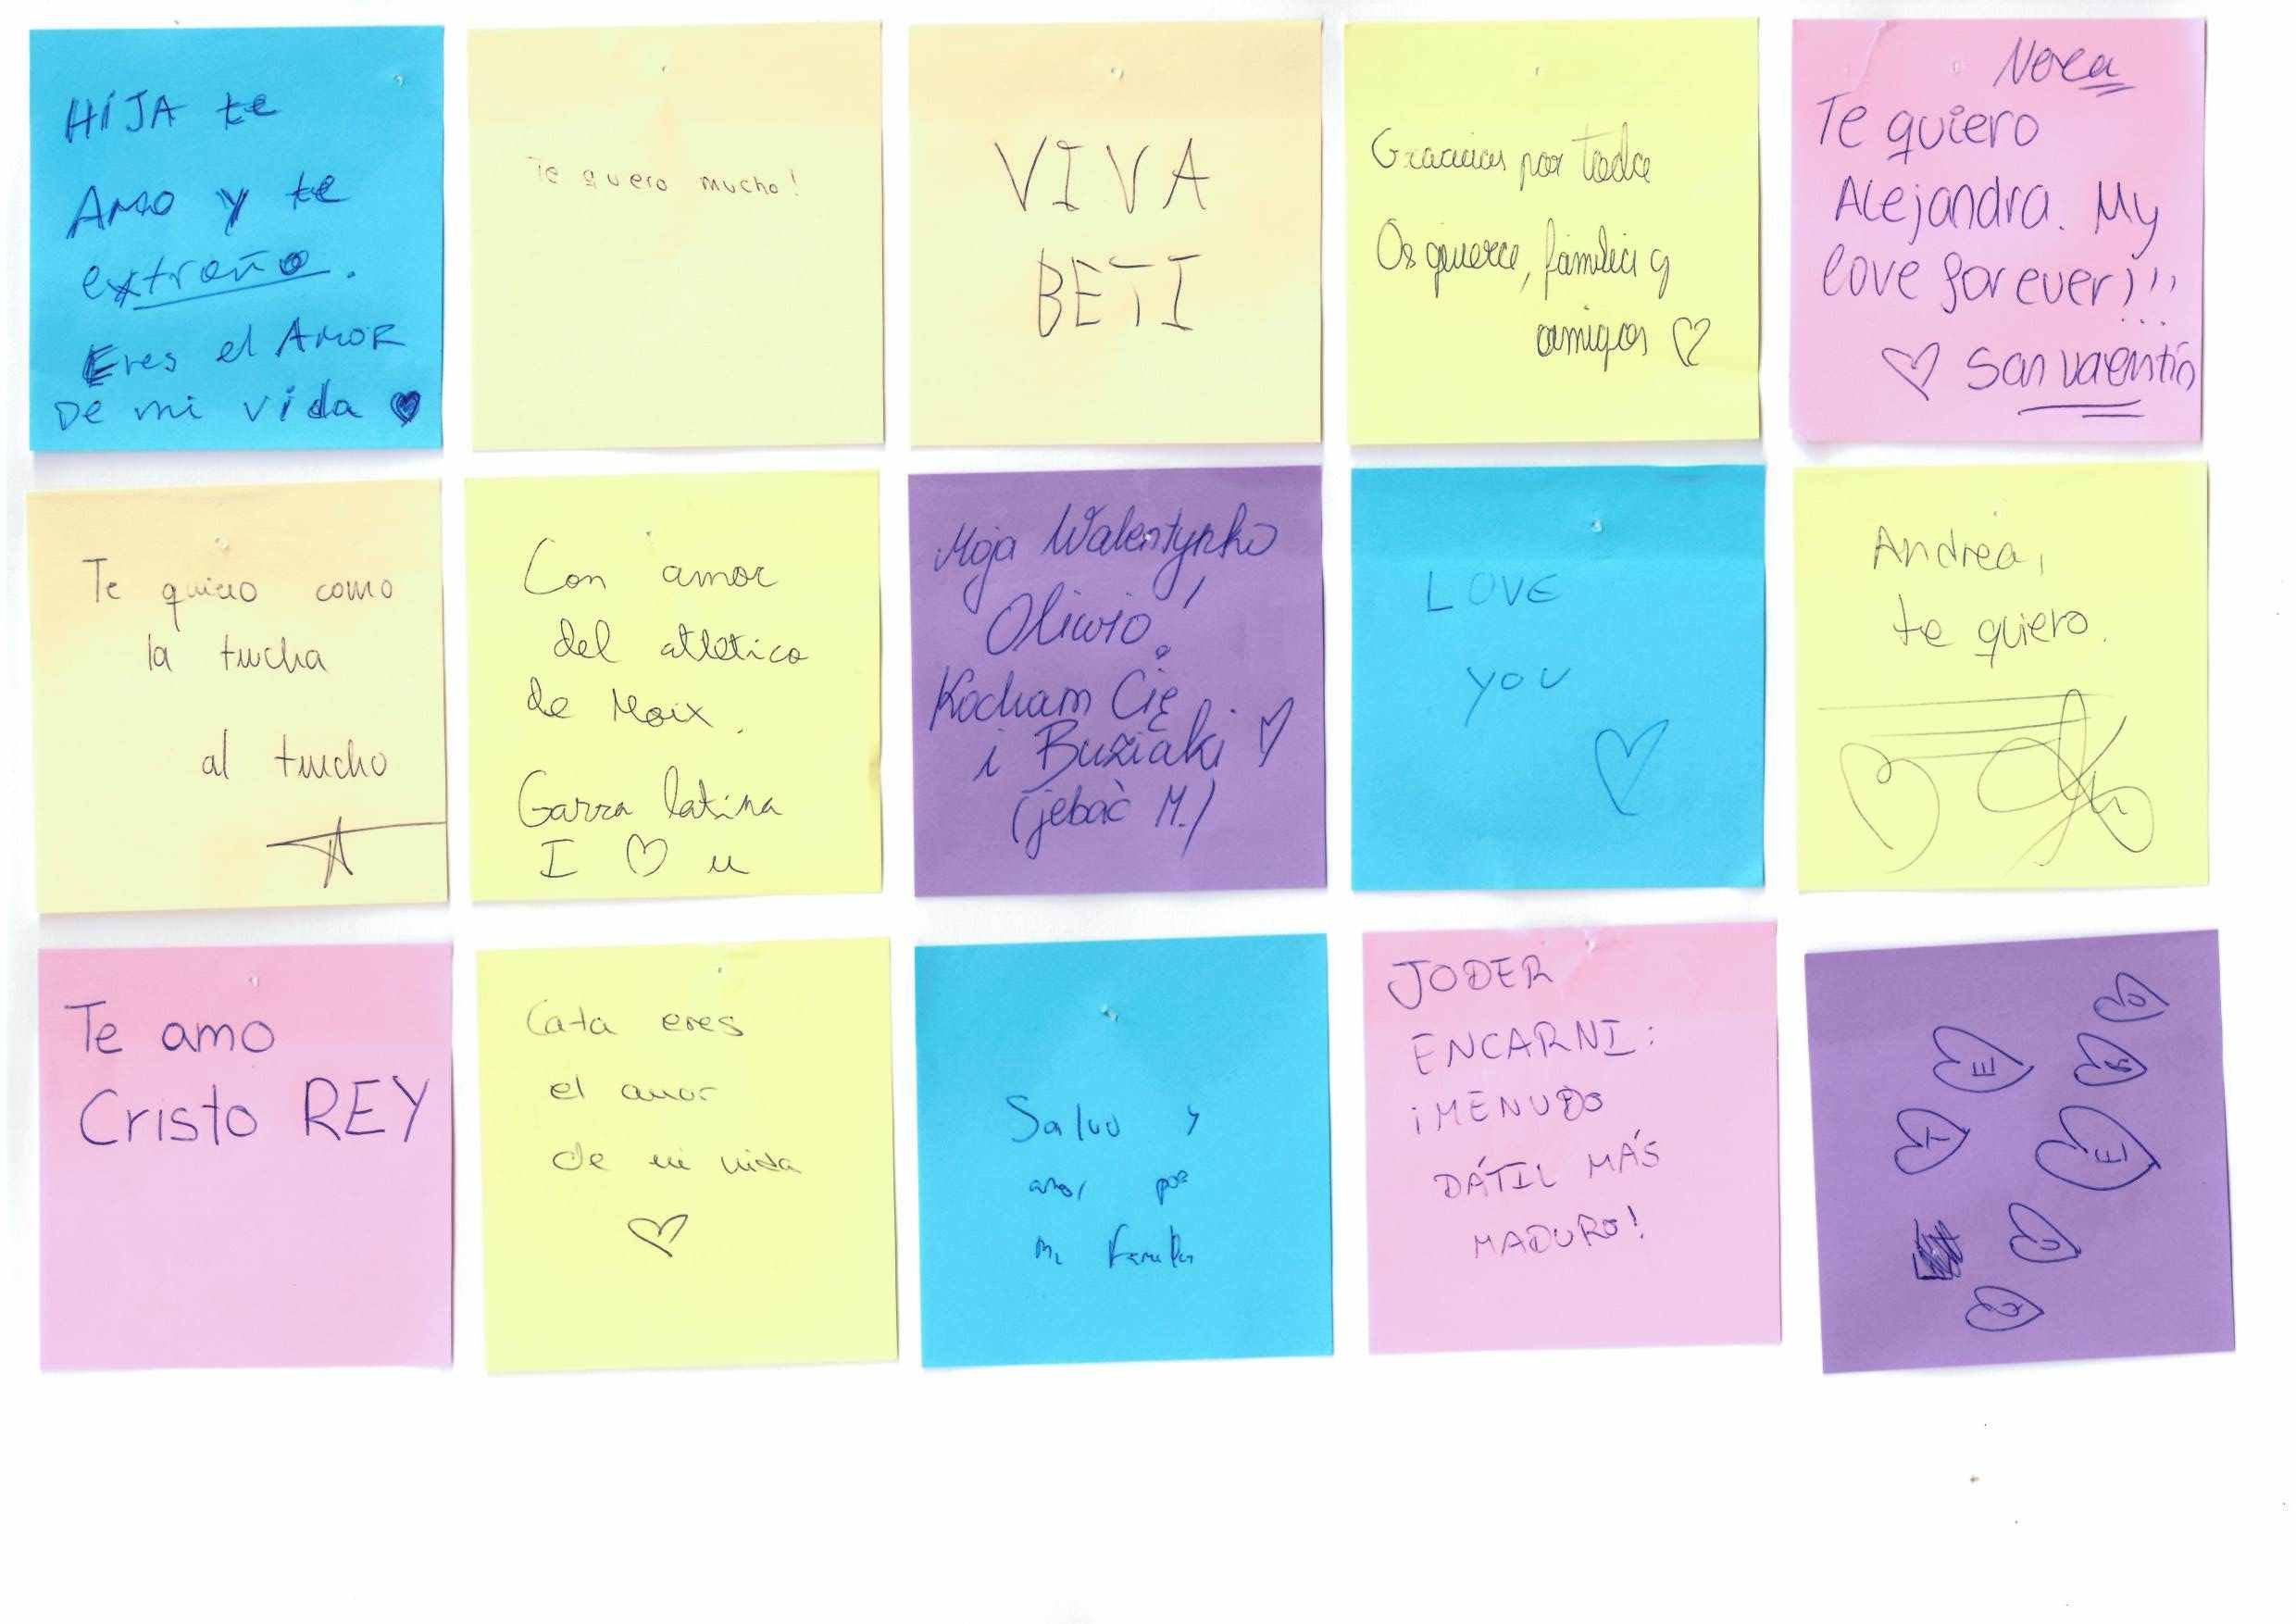 HIJA te
Amo y te
extraño.
Eres el AMOR
De mi vida ♥
Te quero mucho!
VIVA
BETI
Gracias por todo
Os quiero, familia y
amigos ♡
Nerea
Te quiero
Alejandra. My
love forever!!!
♡ San Vaentín
Te quiero como
la trucha
al trucho
Con amor
del atletico
de Moix.
Garra latina
I ♡ u
Moja Walentynko
Oliwio!
Kocham Cię
i Buziaki. ♡
(jebać M.)
LOVE
YOU
♡
Andrea,
te quiero.
Te amo
Cristo REY
Cata eres
el amor
de mi vida
♡
Salud y
amor por
mi familia
JODER
ENCARNI:
¡MENUDO
DÁTIL MÁS
MADURO!
TE
QUERO